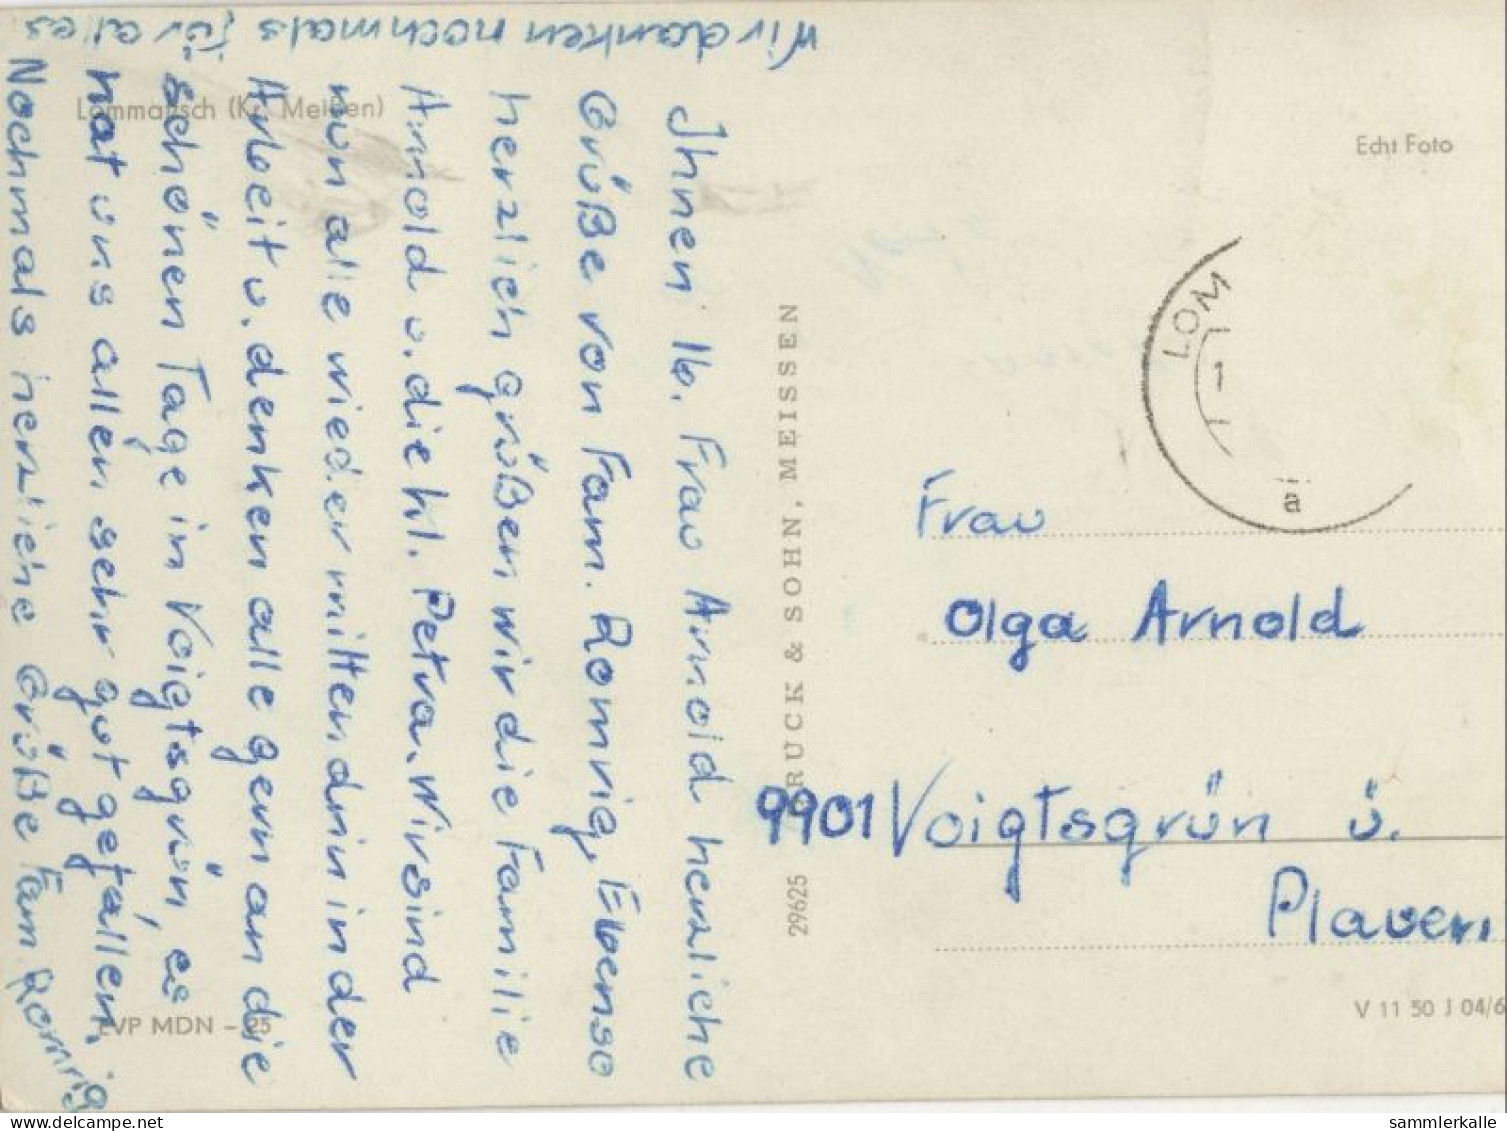 Lommatzsch (Kr. Meißen)
Ihnen lb. Frau Arnold herzliche
Grüße von Fam. Romnig, Ebenso
herzlich grüßen wir die Familie
Arnold u. die kl. Petra. Wir sind
nun alle wieder mitten drin in der
Arbeit u. denken alle gern an die
schönen Tage in Voigtsgrün, es
hat uns allen sehr gut gefallen.
Nochmals herzliche Grüße Fam. Romnig
Wir danken nochmals für alles
EVP MDN -,25
29625 DRUCK & SOHN, MEISSEN
Echt Foto
LOM
1
a
Frau
Olga Arnold
9901 Voigtsgrün ü.
Plauen
V 11 50 J 04/6
sammlerkalle